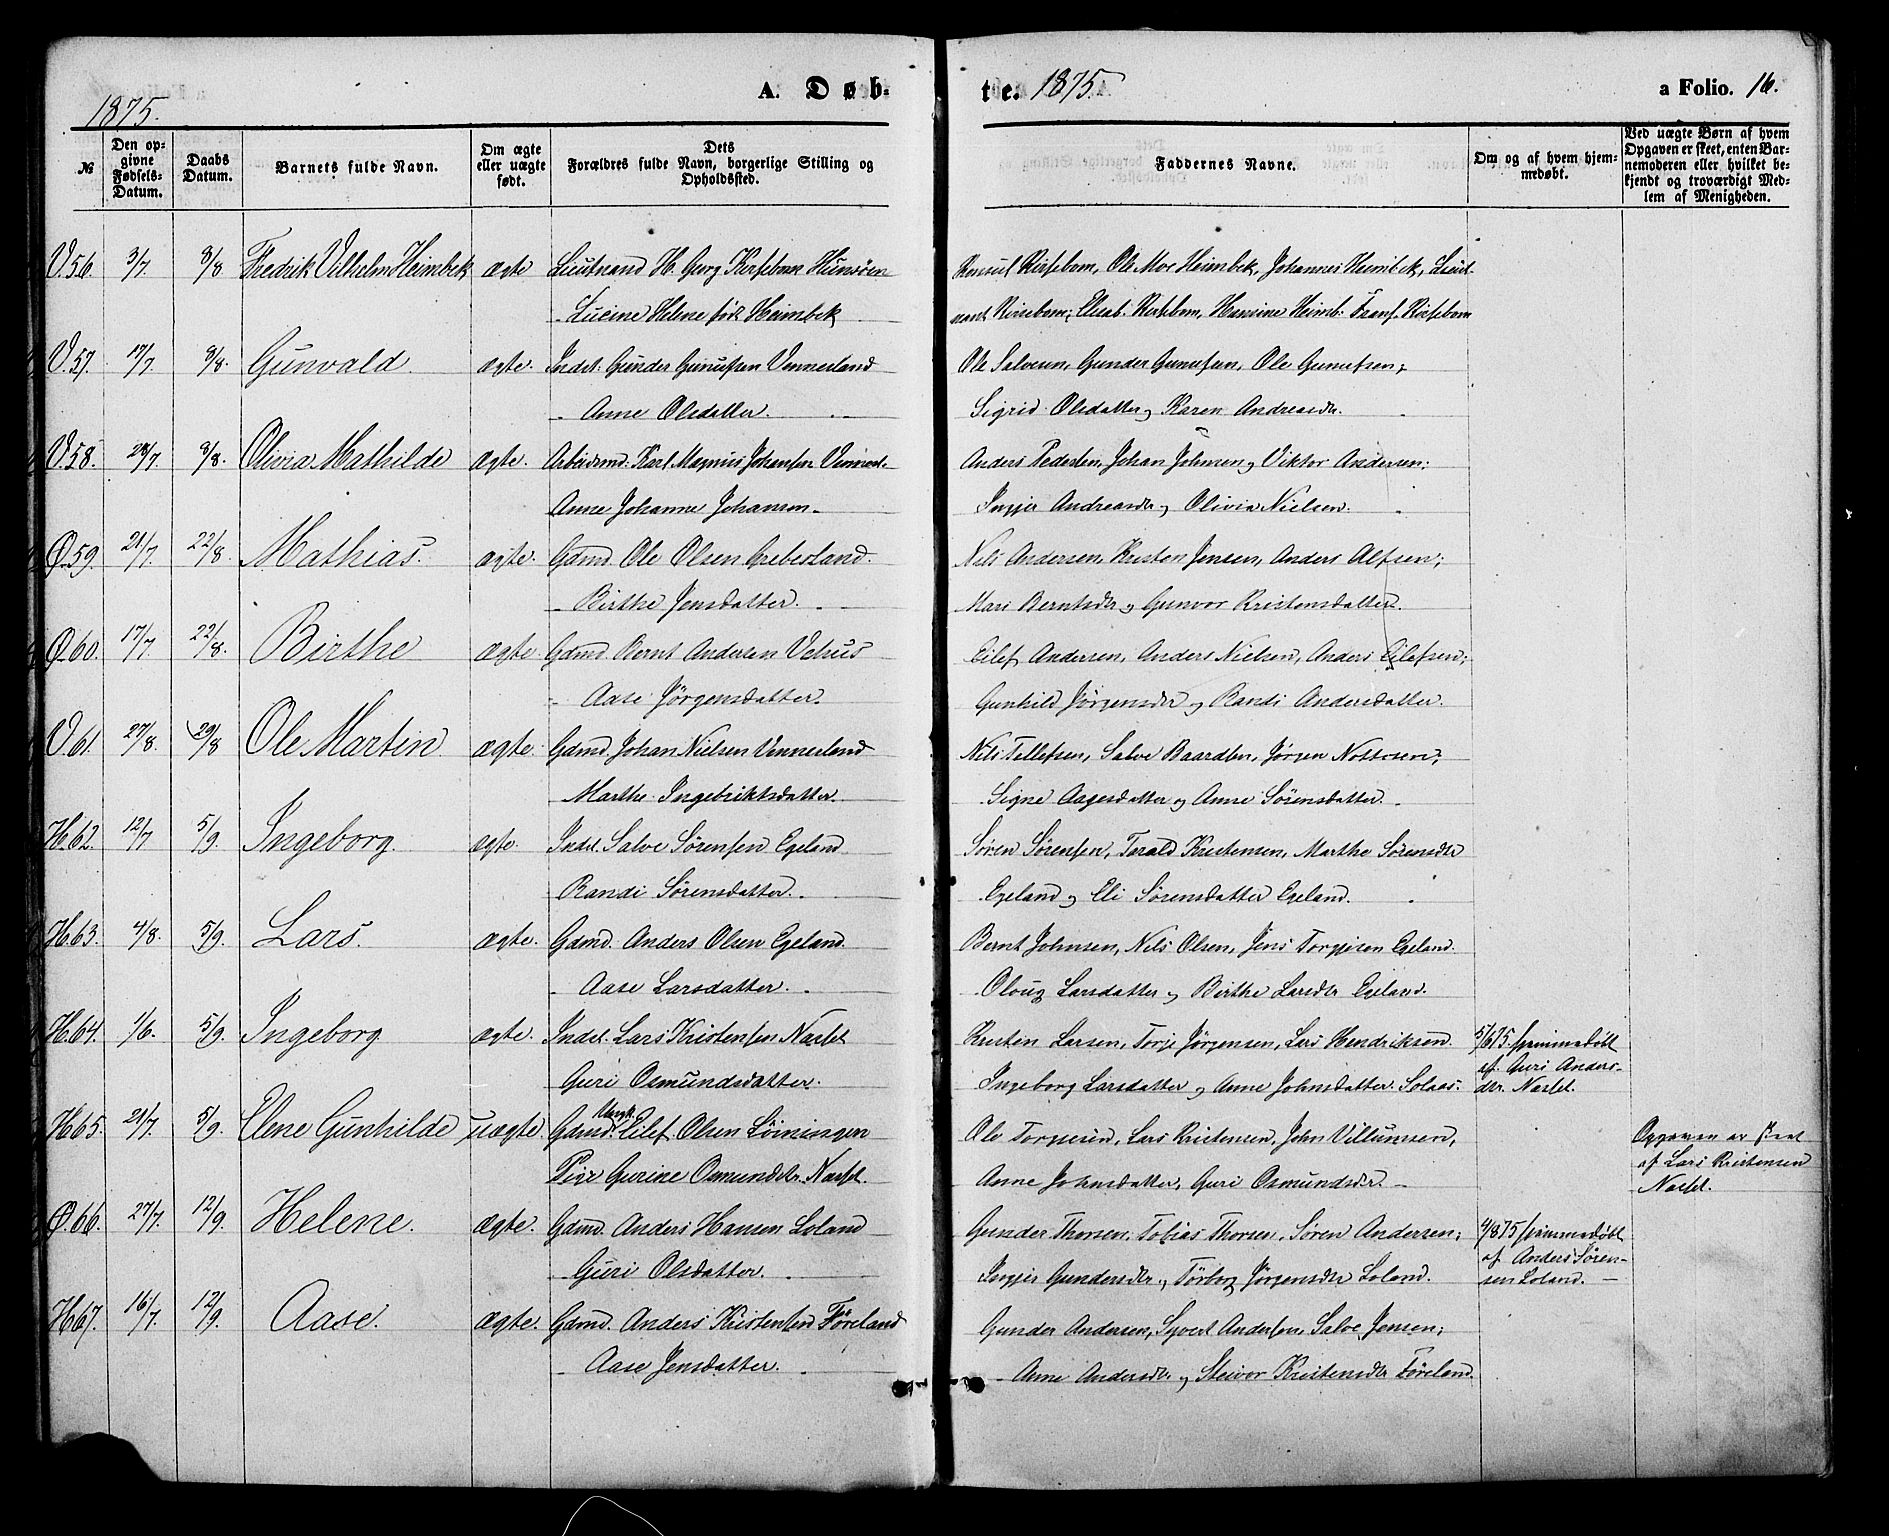 1875.
A. Døb-
te. 1875.
a Folio. 16.
№
Den opgivne Fødsels-Datum.
Daabs Datum.
Barnets fulde Navn.
Om ægte eller uægte født.
Dets Forældres fulde Navn, borgerlige Stilling og Opholdssted.
Faddernes Navne.
Om og af hvem hjemmedøbt.
Ved uægte Børn af hvem Opgaven er skeet, enten Barnemoderen eller hvilket bekjendt og troværdigt Medlem af Menigheden.
V.56. 3/7. 8/8. Fredrik Vilhelm Heimbek ægte Lieutnand H. Georg Kirsebom Hunsøen Konsul Kirsebom, Ole Moe Heimbek, Johannes Heimbek, Lieut-
Lucine Helene fød Heimbek nant Kirsebom; Elisab. Kirsebom, Hansine Heimb. Kirsebom
V.57. 17/7. 8/8. Gunvald. ægte. Indst. Gunder Gunufsen Vennerland Ole Salvesen, Gunder Gunufsen, Ole Gunufsen;
- Anne Olsdatter. Sigrid Olsdatter og Karen Andreasdr.
V.58. 28/7. 8/8. Olivia Mathilde ægte. Arbeidsmd. Karl Magnus Johansen Vennesl. Anders Pedersen, Johan Johnsen og Viktor Andersen;
Anne Johanne Johanson. Ingjer Andreasdr og Olivia Nielsen.
Ø.59. 21/7. 22/8. Mathias. ægte. Gdmd. Ole Olsen Grebesland. Nils Andersen, Kristen Jensen, Anders Alfsen;
- Birthe Jensdatter. Mari Berntsdr og Gunvor Kristensdatter.
Ø.60. 17/7. 22/8. Birthe ægte Gdmd. Bernt Andersen Vehus Eilef Andersen, Anders Nielsen, Anders Eilefsen;
- Aase Jörgensdatter. Gunhild Jörgensdr og Randi Andersdatter.
V.61. 27/8. 29/8 Ole Martin ægte. Gdmd. Johan Nielsen Vennerland Nils Tellefsen, Salve Baardsen, Jörgen Nottosen;
Marthe Ingebriktsdatter. Signe Aagesdatter og Anne Sörensdatter.
H.62. 12/7 5/9. Ingeborg. ægte. Indst. Salve Sörensen Egeland Sören Sörensen, Tarald Kristensen, Marthe Sörensdr
Randi Sörensdatter. Egeland og Eli Sörensdatter Egeland.
H.63. 4/8. 5/9. Lars. ægte. Gdmd. Anders Olsen Egeland. Bernt Johnsen, Nils Olsen, Jens Torgjesen Egeland.
- Aase Larsdatter. Oloug Larsdatter og Birthe Larsdr Egeland.
H.64. 1/6. 5/9. Ingeborg ægte. Indst. Lars Kristensen Naset Kristen Larsen, Torje Jörgensen, Lars Hendriksen. 5/675. hjemmedøbt
Guri Osmundsdatter. Ingeborg Larsdatter og Anne Johnsdatter Solaas. af Guri Anders-
dtr. Naset.
H.65. 21/7. 5/9. Elene Gunhilde uægte. Ungk. Gdmd. Eilef Olsen Löiningen Ole Torgersen, Lars Kristensen, John Villumsen, Opgaven er skeet
Pige Gurine Osmundsdr. Naset. Anne Johnsdatter, Guri Osmundsdr af Lars Kristensen
Naset.
Ø.66. 27/7. 12/9. Helene. ægte. Gdmd. Anders Hansen Loland Gunder Thorsen, Tobias Thorsen, Sören Andersen; 4/875 hjemmedøbt
- Guri Olsdatter. Ingjer Gundersdr og Torborg Jörgensdr Loland. af Anders Sören-
sen Loland.
H.67. 16/7. 12/9. Aase. ægte. Gdmd. Anders Kristensen Föreland Gunder Andersen, Syvert Andersen, Salve Jensen;
- Aase Jensdatter. - Anne Andersdr og Steivor Kristensdr Föreland.